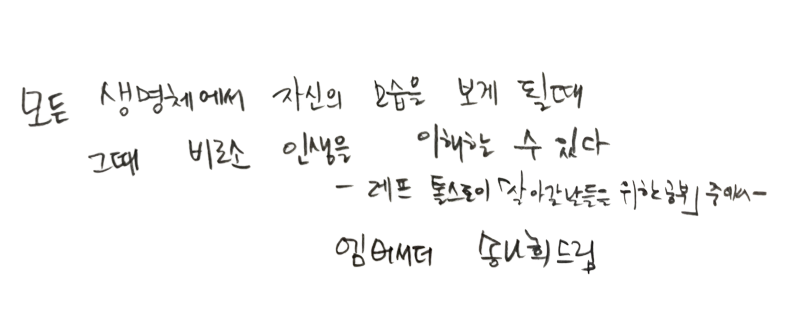 모든 생명체에서 자신의 모습을 보게 될때
그때 비로소 인생을 이해하는 수 있다
- 레프 톨스토이 「살아갈 날들을 위한 공부」 중에서-
엠버서더 송나희드림